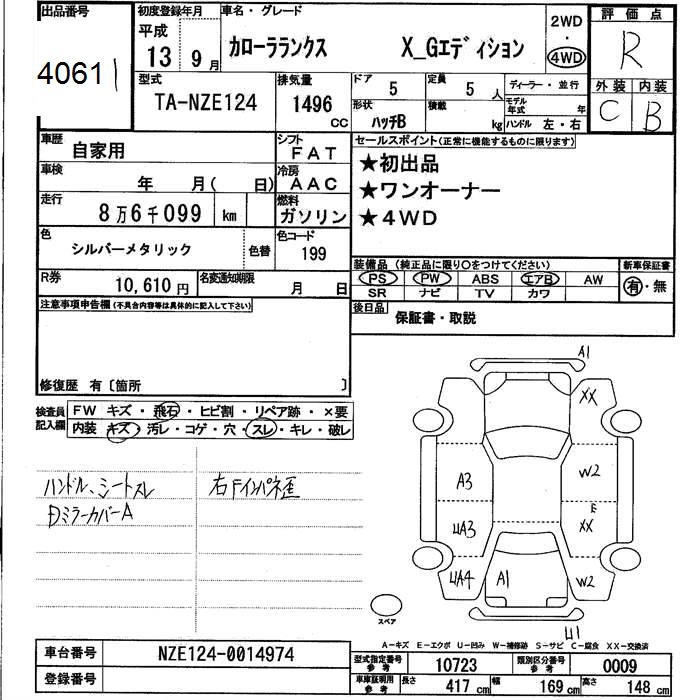 出品番号
40611
初度登録年月
平成
13 9月
車名・グレード
カローラランクス X_Gエディション
2WD
・
4WD
評価点
R
外装 内装
C B
型式
TA-NZE124
排気量
1496 CC
ドア 5
定員 5 人
形状 ハッチB
積載 kg
ディーラー・並行
モデル年式 年
ハンドル 左・右
車歴
自家用
シフト
FAT
車検
年 月( 日)
冷房
AAC
走行
8万6千099 km
燃料
ガソリン
色
シルバーメタリック
色替
色コード
199
R券
10,610円
名変通知期限
月 日
セールスポイント(正常に機能するものに限ります)
★初出品
★ワンオーナー
★4WD
装備品 (純正品に限り○をつけてください)
新車保証書
PS PW ABS エアB AW
SR ナビ TV カワ
有・無
後日品
保証書・取説
注意事項申告欄(不具合内容等は具体的に記入して下さい)
修復歴 有〔箇所 〕
検査員記入欄
FW キズ・飛石・ヒビ割・リペア跡・×要
内装 キズ・汚レ・コゲ・穴・スレ・キレ・破レ
ハンドル、シートスレ
DミラーカバーA
右Fインパネ歪
A1
XX
A3
W2
E
UA3
XX
UA4
A1
W2
U1
スペア
A-キズ E-エクボ U-凹み W-補修跡 S-サビ C-腐食 XX-交換済
車台番号
NZE124-0014974
登録番号
型式指定番号 参考
10723
類別区分番号 参考
0009
車庫証明用 参考
長さ 417 cm
幅 169 cm
高さ 148 cm